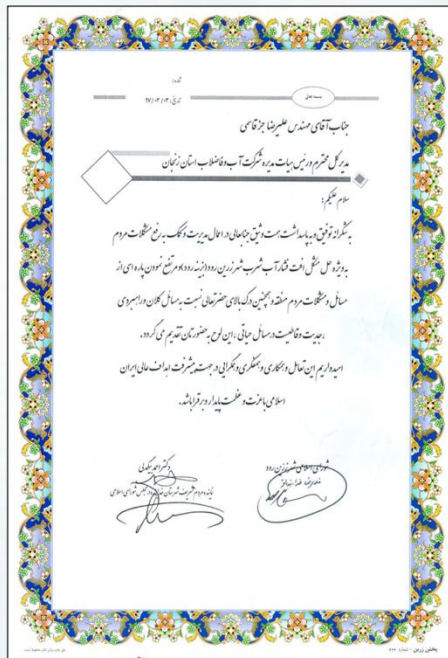 بسمه تعالی
شماره:
تاریخ: ۹۷/۰۳/۰۳
جناب آقای مهندس علیرضا جزءقاسمی
مدیرکل محترم و رئیس هیات مدیره شرکت آب و فاضلاب استان زنجان
سلام علیکم؛
به شکرانه توفیق و به پاسداشت همت وثیق جنابعالی در اعمال مدیریت و کمک به رفع مشکلات مردم
به ویژه حل مشکل افت فشار آب شرب شهر زرین رود (بزینه رود) و مرتفع نمودن پاره ای از
مسائل و مشکلات مردم منطقه و همچنین درک بالای حضرتعالی نسبت به مسائل کلان و راهبردی
، جدیت و قاطعیت در مسائل حیاتی ، این لوح به حضورتان تقدیم می گردد.
امیدواریم این تعامل و همکاری و همفکری و همگرایی در جهت پیشرفت اهداف عالی ایران
اسلامی با عزت و عظمت پایدار و برقرار باشد.
شورای اسلامی شهر زرین رود
دکتر احمد بیگدلی
نماینده مردم شریف شهرستان خدابنده در مجلس شورای اسلامی
پخش زرین - شماره